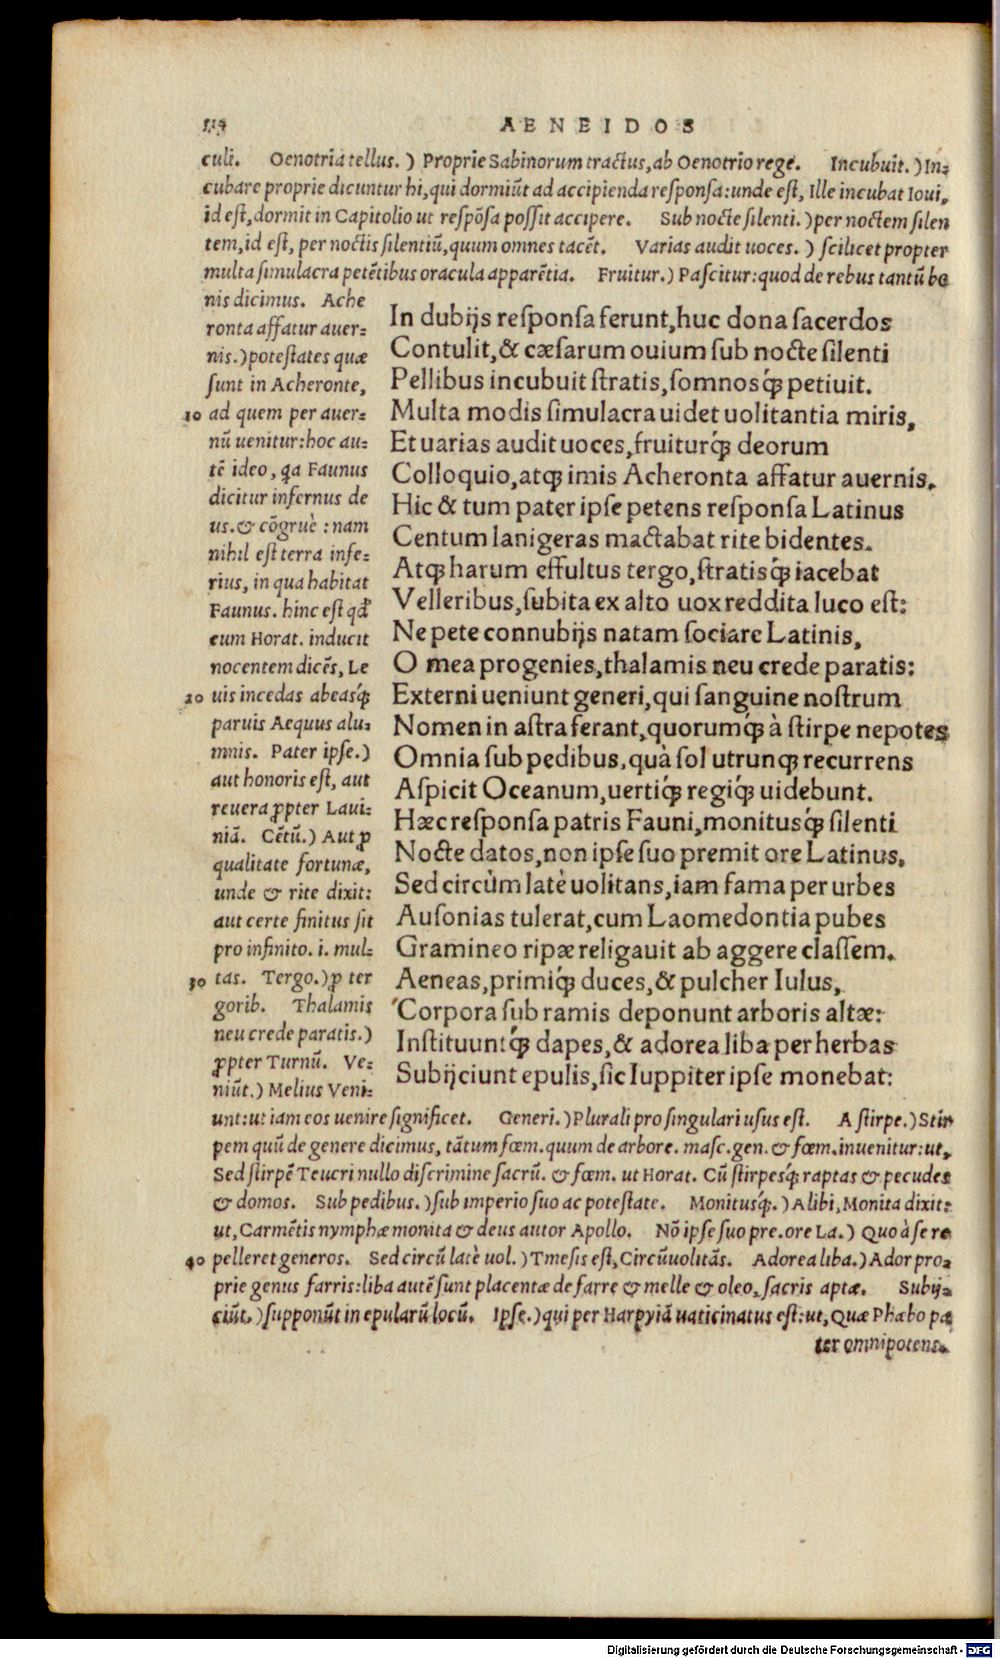 AENEIDOS
culi. Oenotria tellus.) Proprie Sabinorum tractus, ab Oenotrio rege. Incubuit.) In-
cubare proprie dicuntur hi, qui dormiūt ad accipienda responsa: unde est, Ille incubat Ioui,
id est, dormit in Capitolio ut respōsa possit accipere. Sub nocte silenti.) per noctem silen
tem, id est, per noctis silentiū, quum omnes tacēt. Varias audit uoces.) scilicet propter
multa simulacra petētibus oracula apparētia. Fruitur.) Pascitur: quod de rebus tantū bo
nis dicimus. Ache
ronta affatur auer-
nis.) potestates quæ
sunt in Acheronte,
10 ad quem per auer-
nū uenitur: hoc au-
tē ideo, qa Faunus
dicitur infernus de
us. & cōgruè: nam
nihil est terra infe-
rius, in qua habitat
Faunus. hinc est qđ
eum Horat. inducit
nocentem dicēs, Le
20 uis incedas abeasq́;
paruis Aequus alu-
mnis. Pater ipse.)
aut honoris est, aut
reuera ꝓpter Laui-
niā. Cētū.) Aut ꝓ
qualitate fortunæ,
unde & rite dixit:
aut certe finitus sit
pro infinito. i. mul-
30 tas. Tergo.) ꝓ ter
gorib. Thalamis
neu crede paratis.)
ꝓpter Turnū. Ve-
niūt.) Melius Veni-
In dubijs responsa ferunt, huc dona sacerdos
Contulit, & cæsarum ouium sub nocte silenti
Pellibus incubuit stratis, somnosq́; petiuit.
Multa modis simulacra uidet uolitantia miris,
Et uarias audit uoces, fruiturq́; deorum
Colloquio, atq; imis Acheronta affatur auernis.
Hic & tum pater ipse petens responsa Latinus
Centum lanigeras mactabat rite bidentes.
Atq; harum effultus tergo, stratisq́; iacebat
Velleribus, subita ex alto uox reddita luco est:
Ne pete connubijs natam sociare Latinis,
O mea progenies, thalamis neu crede paratis:
Externi ueniunt generi, qui sanguine nostrum
Nomen in astra ferant, quorumq́; à stirpe nepotes
Omnia sub pedibus, quà sol utrunq; recurrens
Aspicit Oceanum, uertiq́; regiq́; uidebunt.
Hæc responsa patris Fauni, monitusq́; silenti
Nocte datos, non ipse suo premit ore Latinus,
Sed circùm latè uolitans, iam fama per urbes
Ausonias tulerat, cum Laomedontia pubes
Gramineo ripæ religauit ab aggere classem.
Aeneas, primiq́; duces, & pulcher Iulus,
Corpora sub ramis deponunt arboris altæ:
Instituuntq́; dapes, & adorea liba per herbas
Subijciunt epulis, sic Iuppiter ipse monebat:
unt: ut iam eos uenire significet. Generi.) Plurali pro singulari usus est. A stirpe.) Stir
pem quū de genere dicimus, tātum fœm. quum de arbore. masc. gen. & fœm. inuenitur: ut,
Sed stirpē Teucri nullo discrimine sacrū. & fœm. ut Horat. Cū stirpesq́; raptas & pecudes
& domos. Sub pedibus.) sub imperio suo ac potestate. Monitusq́;.) Alibi, Monita dixit:
ut, Carmētis nymphæ monita & deus autor Apollo. Nō ipse suo pre. ore La.) Quo à se re
40 pelleret generos. Sed circū latè uol.) Tmesis est, Circūuolitās. Adorea liba.) Ador pro-
prie genus farris: liba autē sunt placentæ de farre & melle & oleo, sacris aptæ. Subij-
ciūt.) supponūt in epularū locū. Ipse.) qui per Harpyiā uaticinatus est: ut, Quæ Phœbo pa
ter omnipotens.
Digitalisierung gefördert durch die Deutsche Forschungsgemeinschaft - DFG